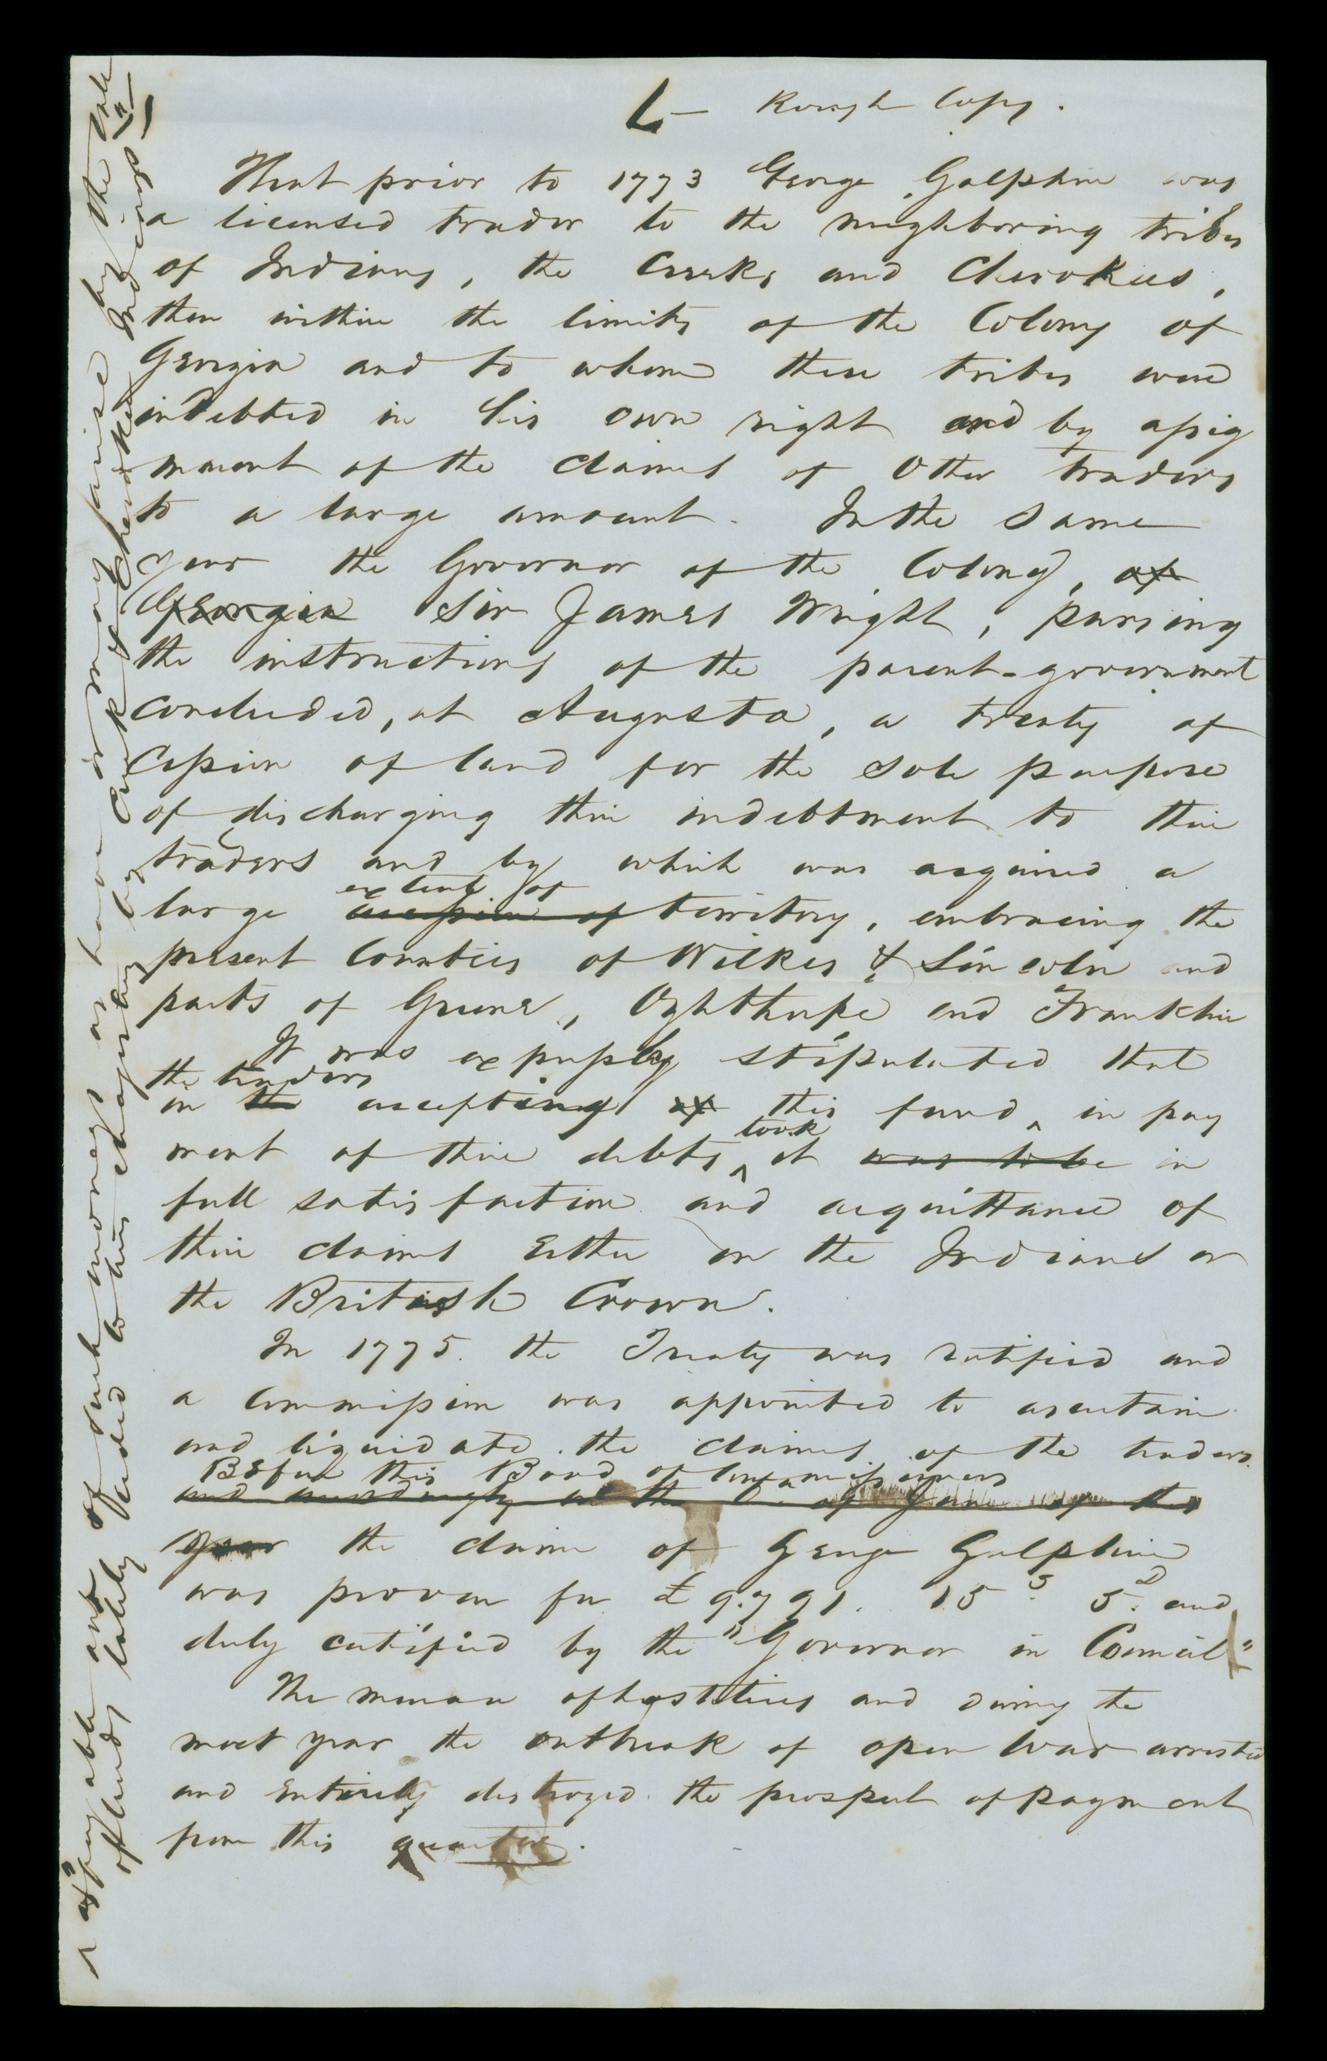 L — Rough Copy.
That prior to 1773 George Galphin was
a licensed trader to the neighboring tribes
of Indians, the Creeks and Cherokees,
then within the limits of the Colony of
Georgia and to whom these tribes were
indebted in his own right and by assig
nment of the claims of Other traders
to a large amount. In the same
year the Governor of the Colony, of
Georgia Sir James Wright, pursuing
the instructions of the parent-government
concluded, at Augusta, a treaty of
cession of land for the sole purpose
of discharging their indebtment to their
traders and by which was acquired a
extent of
large accession of territory, embracing the
present Counties of Wilkes & Lincoln and
parts of Greene, Oglethorpe and Franklin
It was expressly stipulated that
the traders
in the accepting of this fund ^ in pay
took
ment of their debts, ^ it was to be in
full satisfaction and acquittance of
their claims Either on the Indians or
the British Crown.
In 1775. the Treaty was ratified and
a Commission was appointed to ascertain
and liquidate the claims of the traders.
Before this Board of Commissioners
and accordingly at the of June of the
year the claim of George Galphin
was proven for £9.791. 15s. 5d. and
duly certified by the "Governor in Council"
The menace of hostilities and during the
next year the outbreak of open War arrested
and Entirely destroyed the prospect of Payment
from this quarter.
^ "payable out of such moneys as have or may arise by the sale
of lands lately ceded to his majesty by Creek & Cherokee Indians"